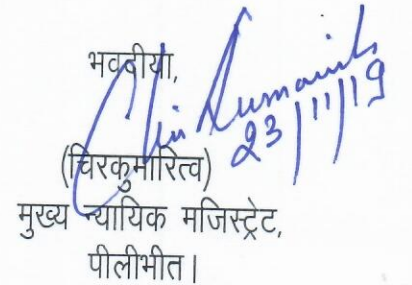 भवदीया,
23/11/19
(चिरकुमारित्व)
मुख्य न्यायिक मजिस्ट्रेट,
पीलीभीत।